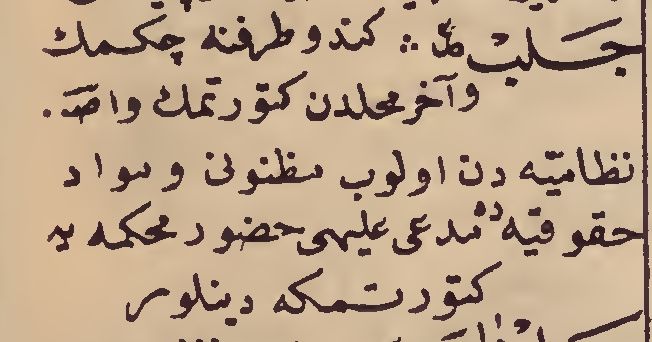 جلب ط : كندو طرفنه چكمك
وآخر محلدن كتورتمك واصط.
نظاميّه دن اولوب مظنونى ومواد
حقوقيّه ده مدعى عليهى حضور محكمه يه
كتورتمكه دينلور